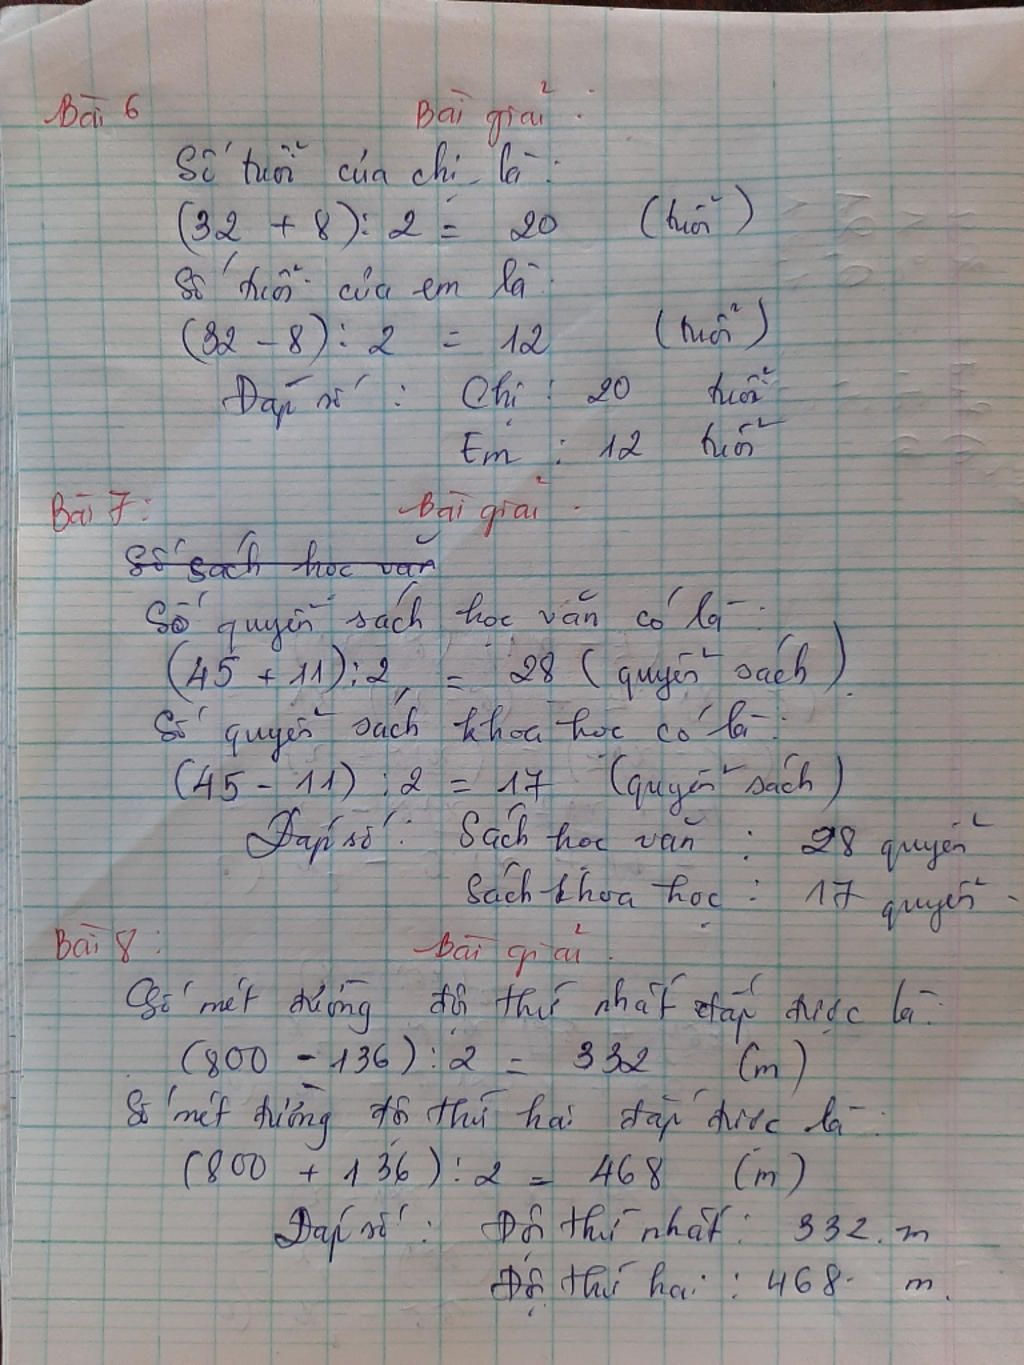 Bài 6 Bài giải :
Số tuổi của chị là :
(32 + 8) : 2 = 20 (tuổi)
Số tuổi của em là :
(32 - 8) : 2 = 12 (tuổi)
Đáp số : Chị : 20 tuổi
Em : 12 tuổi
Bài 7 : Bài giải .
Số sách học văn
Số quyển sách học văn có là :
(45 + 11) : 2 = 28 (quyển sách)
Số quyển sách khoa học có là :
(45 - 11) : 2 = 17 (quyển sách)
Đáp số : Sách học văn : 28 quyển
Sách khoa học : 17 quyển .
Bài 8 : Bài giải .
Số mét đường đội thứ nhất đắp được là :
(800 - 136) : 2 = 332 (m)
Số mét đường đội thứ hai đắp được là :
(800 + 136) : 2 = 468 (m)
Đáp số : Đội thứ nhất : 332. m
Đội thứ hai : 468 m.